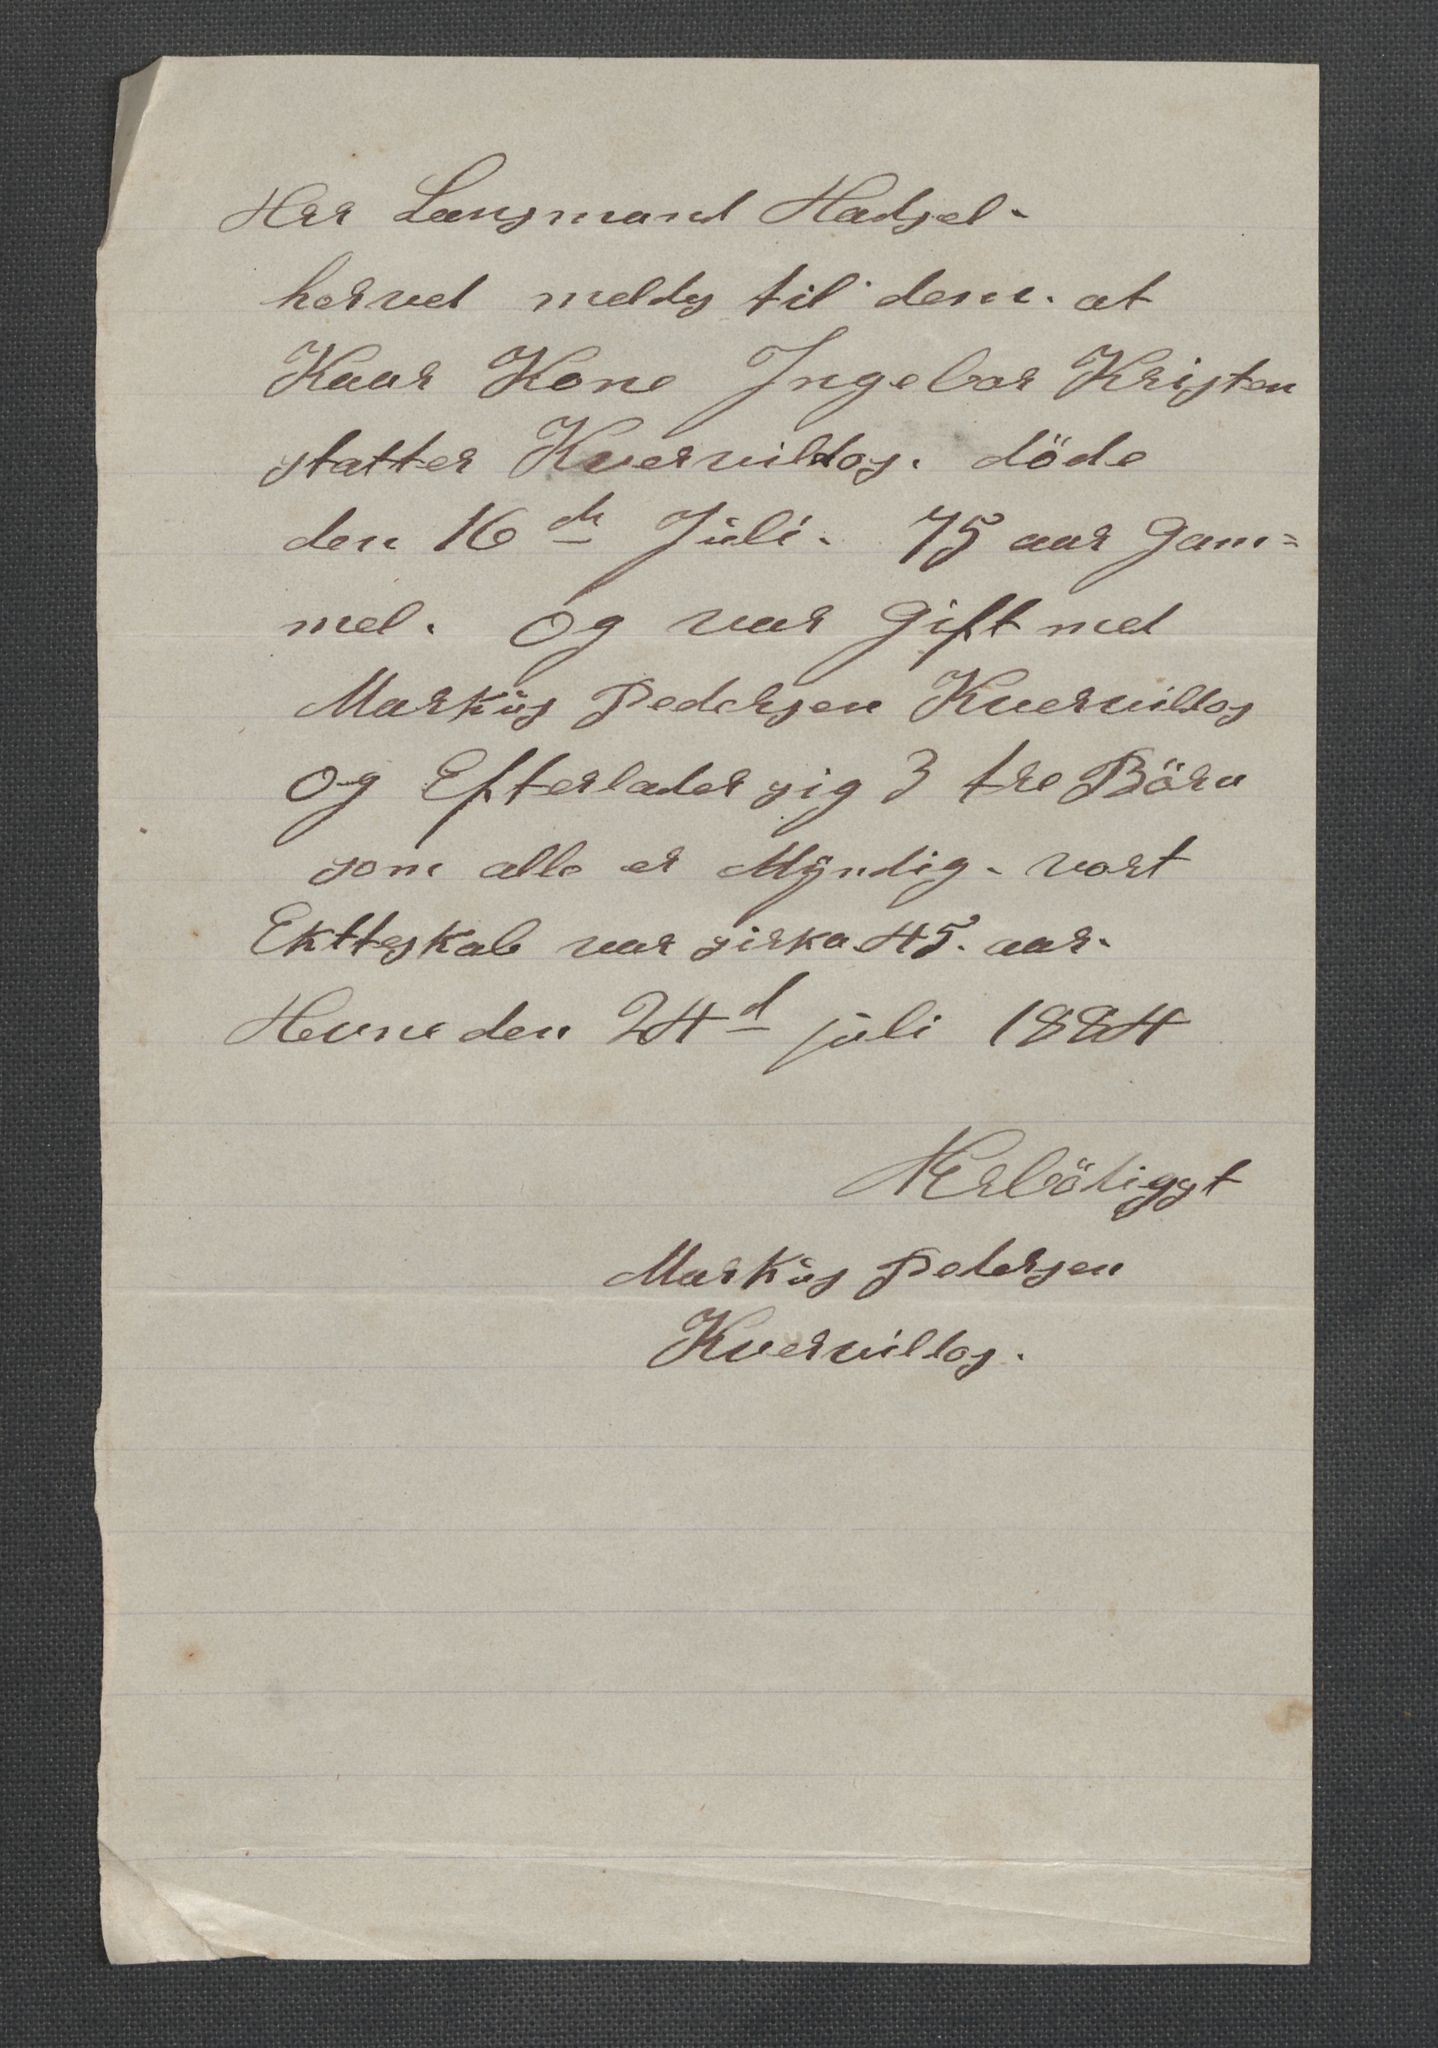 Herr Lensmand Hadsel.
herved melds til dem. at
Kaar Kone Ingebor Kristen
statter Kvervildos. döde
den 16 de Juli. 75 aar Gam=
mel. og var Gift med
Markus Pedersen Kvervildos
og Efterlader sig 3 tre Börn
som alle er Myndig. vort
Ektteskab var sirka 45. aar.
Hevne den 24 d juli 1884
Ærbödigst
Markus Pedersen
Kvervildos.